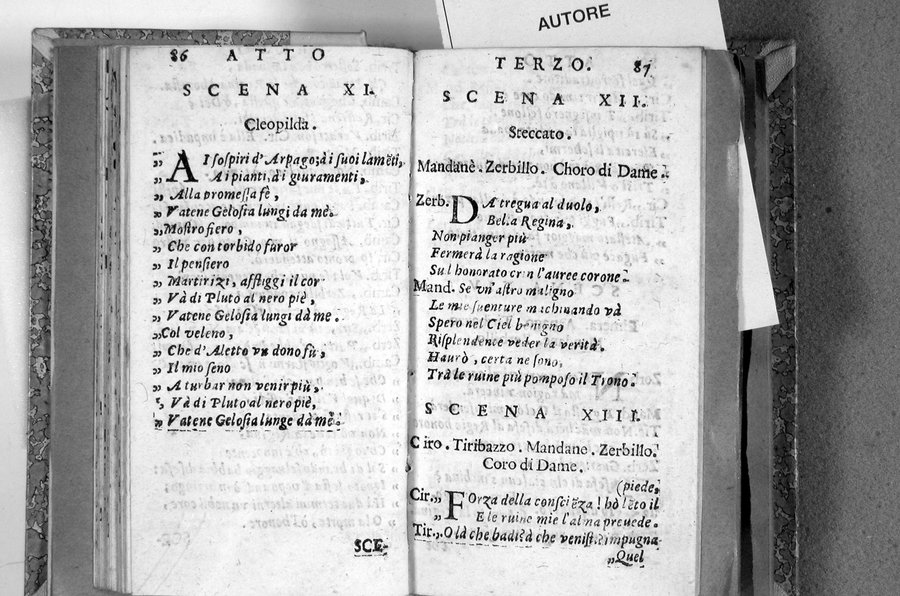 AUTORE
86 ATTO
SCENA XI.
Cleopilda.
„ AI sospiri d'Arpago; à i suoi lamēti,
„ A i pianti, à i giuramenti,
„ Alla promessa fè,
„ Vatene Gelosia lungi da mè.
„ Mostro fiero,
„ Che con torbido furor
„ Il pensiero
„ Martirizi, affliggi il cor
„ Và di Pluto al nero piè,
„ Vatene Gelosia lungi da me.
„ Col veleno,
„ Che d'Aletto vn dono fù,
„ Il mio seno
„ A turbar non venir più,
„ Và di Pluto al nero piè,
„ Vatene Gelosia lunge da mè.
SCE-
TERZO. 87
SCENA XII.
Steccato.
Mandane. Zerbillo. Choro di Dame.
Zerb. DA tregua al duolo,
Bella Regina,
Non pianger più
Fermerà la ragione
Sul honorato crin l'auree corone
Mand. Se vn'astro maligno
Le mie suenture machinando và
Spero nel Ciel benigno
Risplendente veder la verità.
Haurò, certa ne sono,
Trà le ruine più pomposo il Trono.
SCENA XIII.
Ciro. Tiribazzo. Mandane. Zerbillo.
Coro di Dame.
(piede,
Cir. „ FOrza della consciēza! hò lēto il
„ E le ruine mie l'alma preuede.
Tir. „ Olà che badi? à che venisti? impugna
„ Quel